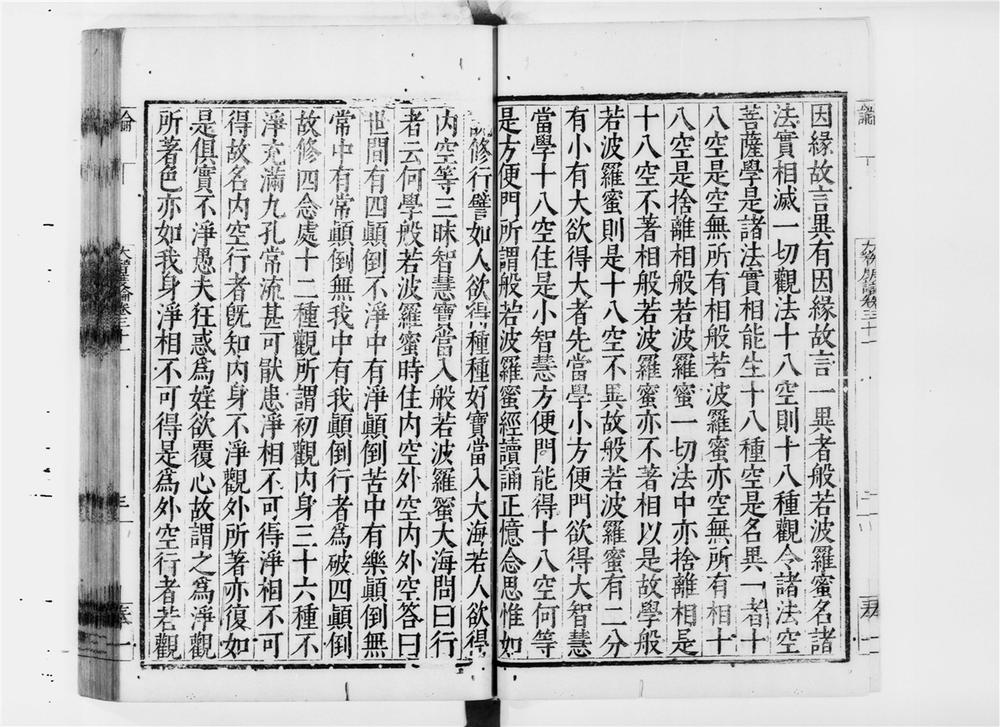 因緣故言異有因緣故言一異者般若波羅蜜名諸
法實相滅一切觀法十八空則十八種觀令諸法空
菩薩學是諸法實相能生十八種空是名異一者十
八空是空無所有相般若波羅蜜亦空無所有相十
八空是捨離相般若波羅蜜一切法中亦捨離相是
十八空不著相般若波羅蜜亦不著相以是故學般
若波羅蜜則是十八空不異故般若波羅蜜有二分
有小有大欲得大者先當學小方便門欲得大智慧
當學十八空住是小智慧方便門能得十八空何等
是方便門所謂般若波羅蜜經讀誦正憶念思惟如
說修行譬如人欲得種種好寶當入大海若人欲得
內空等三昧智慧寶當入般若波羅蜜大海問曰行
者云何學般若波羅蜜時住內空外空內外空答曰
世間有四顛倒不淨中有淨顛倒苦中有樂顛倒無
常中有常顛倒無我中有我顛倒行者為破四顛倒
故修四念處十二種觀所謂初觀內身三十六種不
淨充滿九孔常流甚可厭患淨相不可得淨相不可
得故名內空行者既知內身不淨觀外所著亦復如
是俱實不淨愚夫狂惑為婬欲覆心故謂之為淨觀
所著色亦如我身淨相不可得是為外空行者若觀
論
大智度論卷三十一